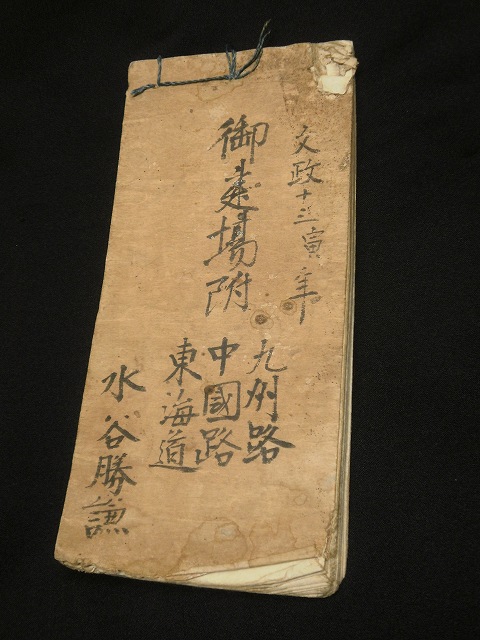 文政十三寅年
御建場附
九州路
中國路
東海道
水谷勝謙